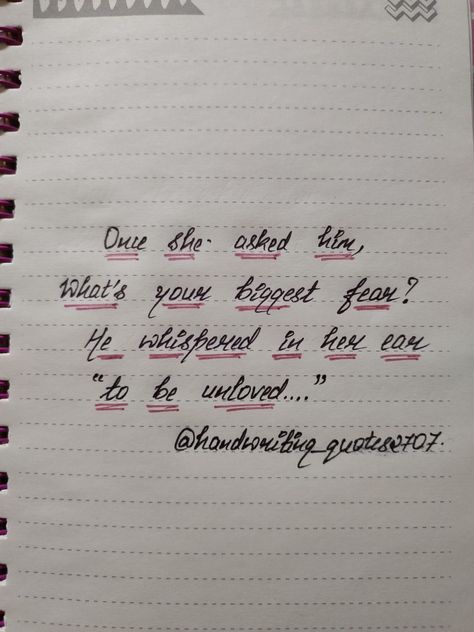 Once she asked him,
What's your biggest fear?
He whispered in her ear
"to be unloved...."
@handwriting_quotes2707.